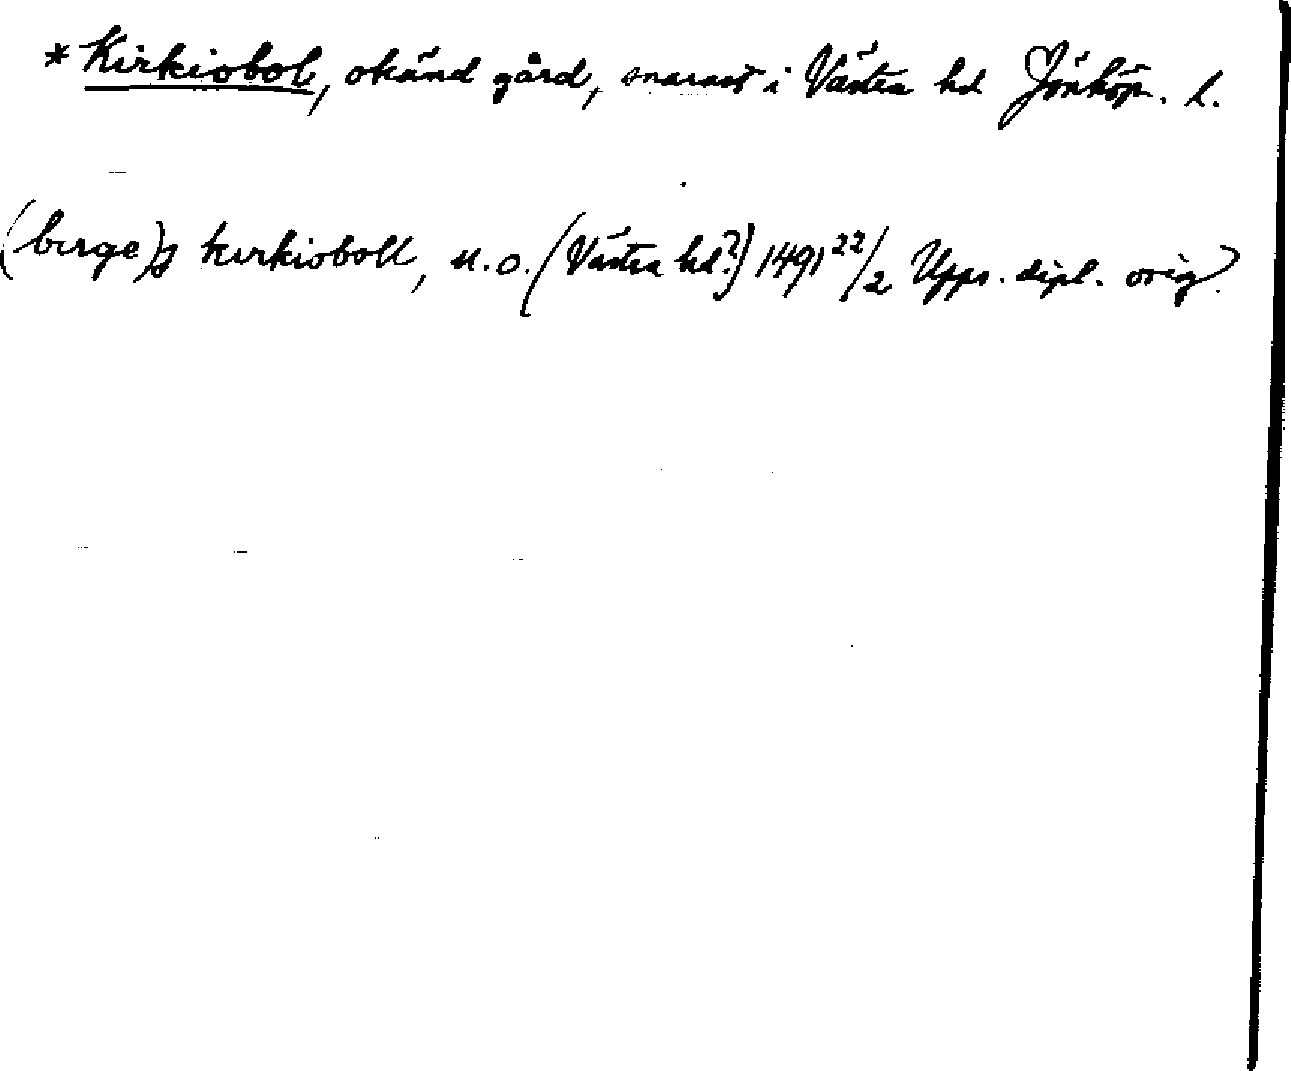 * Kirkiobol, okänd gård, snarast i Västra hd Jönköp. l.
(birge)s kirkioboll, u.o. (Västra hd?) 1491 22/2 Upps. dipl. orig?